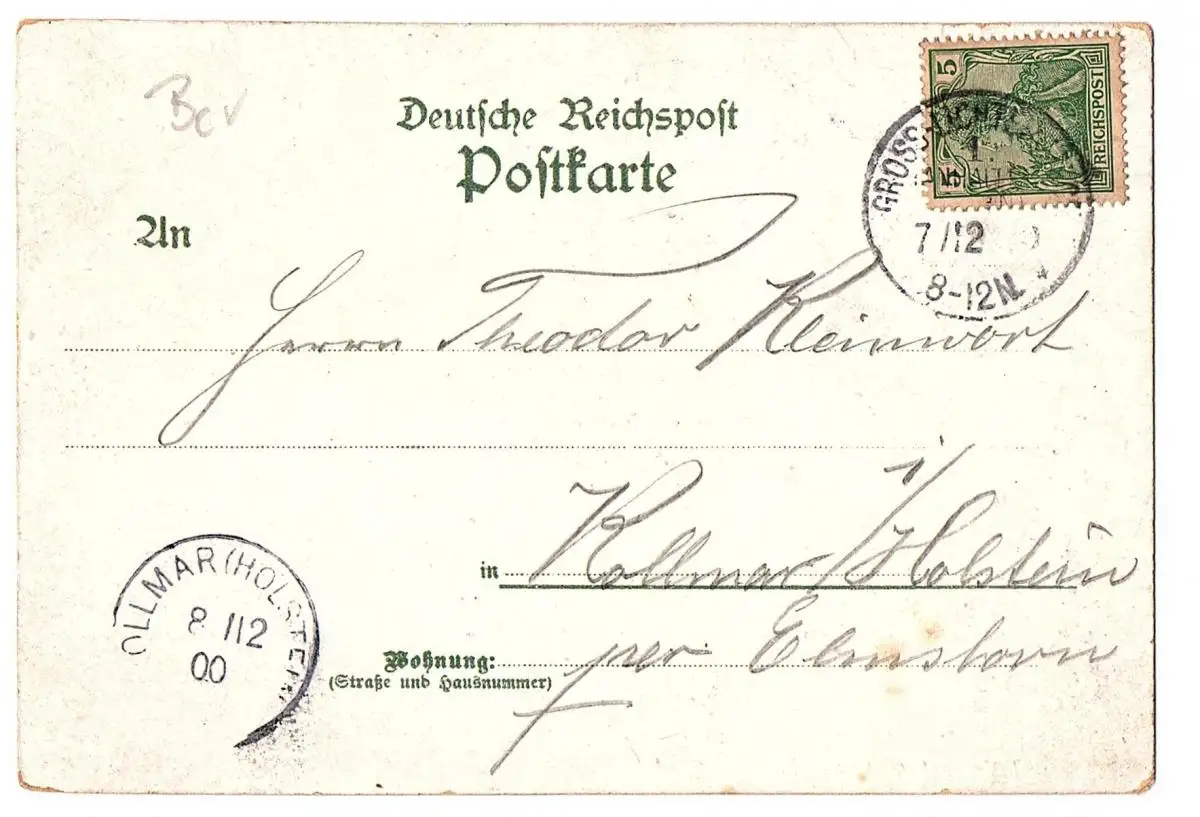 Deutsche Reichspost
Postkarte
An
5
5
REICHSPOST
GROSS-LICHTE
1.
7/12
8-12N.
Herrn Theodor Kleinwort
in Kollmar i/Holstein
Wohnung: per Elmshorn
(Straße und Hausnummer)
OLLMAR (HOLSTEIN
8/12
00